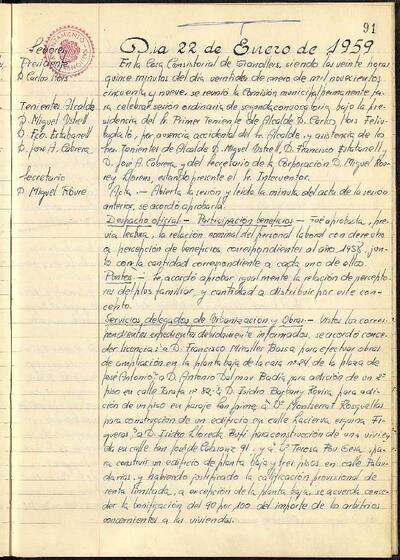 91
Señores
Presidente
D Carlos Flois
Tenientes Alcalde
D. Miguel Ustrell
D Fco. Estabanell
D. José A. Cabrera
Secretario
D Miguel Roure
Dia 22 de Enero de 1959
En la Casa Consistorial de Granollers, siendo las veinte horas
quince minutos del dia veintidos de enero de mil novecientos
cincuenta y nueve, se reunió la Comisión municipal permanente pa
ra celebrar sesion ordinaria de segunda convocatoria, bajo la presi
dencia del Sr Primer Teniente de Alcalde D. Carlos
por ausencia accidental del Sr. Alcalde, y asistencia de los
Sres Tenientes de Alcalde D. Miguel Ustrell, D. Francisco Estabanell,
D. José A. Cabrera, y del Secretario de la Corporación D. Miguel Rou-
re y Llorens, estando presente el Sr. Interventor.
Acta.- Abierta la sesión y leida la minuta del acta de la sesión
anterior, se acordó aprobarla.
Despacho oficial.- Participación beneficios.- Fue aprobada, pre
via lectura, la relación nominal del personal laboral con derecho
a percepción de beneficios correspondientes al año 1958, jun-
to con la cantidad correspondiente a cada uno de ellos.
Puntos.- Se acordó aprobar igualmente la relación de percepto-
res del plus familiar, y cantidad a distribuir por este con-
cepto.
Servicios delegados de Urbanización y Obras.- Vistos los corres-
pondientes expedientes debidamente informados, se acordó conce-
der licencia: a D. Francisco Miralles Barsa para efectuar obras
de ampliación en la planta baja de la casa nº 24 de la plaza de
José Antonio; a D. Antonio Dalmau Badia para adición de un 2º
piso en calle Tarafa nº 32; a D. Isidro Barbany Rovira para adi-
ción de un piso en paraje; a Dª Montserrat Rosquellas
para construcción de un edificio en calle esquina Fi-
gueras; a D. Isidro Lloreda Bufi para construcción de una vivien
da en calle San José de Calasanz 91, y a Dª Teresa Pou Seva, pa-
ra construir un edificio de planta baja y tres pisos en calle Palau-
darias, y habiendo justificado la calificación provisional de
renta limitada, a excepción de la planta baja, se acuerda conce-
der la bonificación del 90 por 100 del importe de los arbitrios
concernientes a las viviendas.